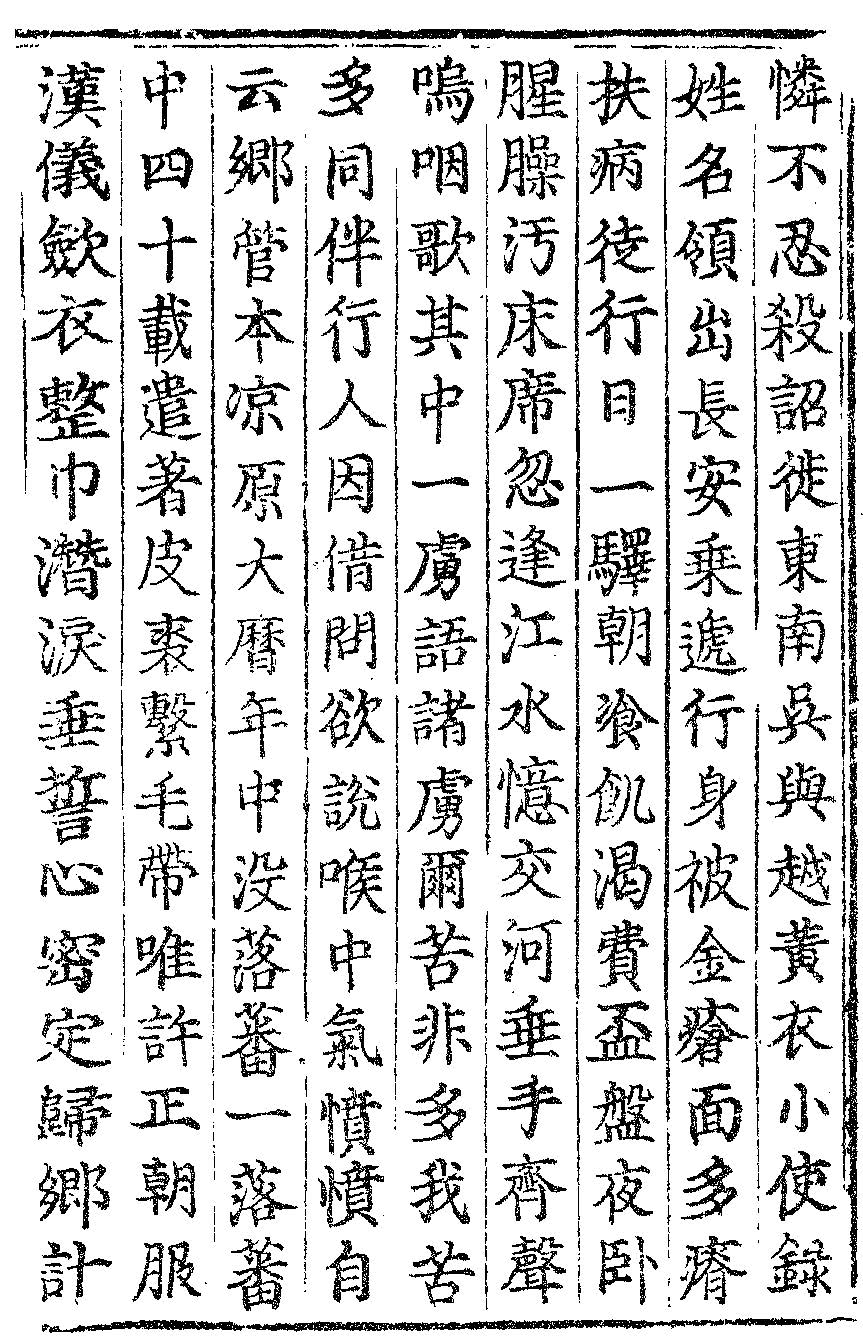 憐不忍殺詔徙東南吳與越黃衣小使錄
姓名領出長安乗遞行身被金瘡面多瘠
扶病徒行日一驛朝飡飢渴費盃盤夜卧
腥臊汚床席忽逢江水憶交河垂手齊聲
嗚咽歌其中一虜語諸虜爾苦非多我苦
多同伴行人因借問欲説喉中氣憤憤自
云鄉管本凉原大曆年中没落蕃一落蕃
中四十載遣著皮裘繫毛帶唯許正朝服
漢儀歛衣整巾潛淚垂誓心密定歸鄉計